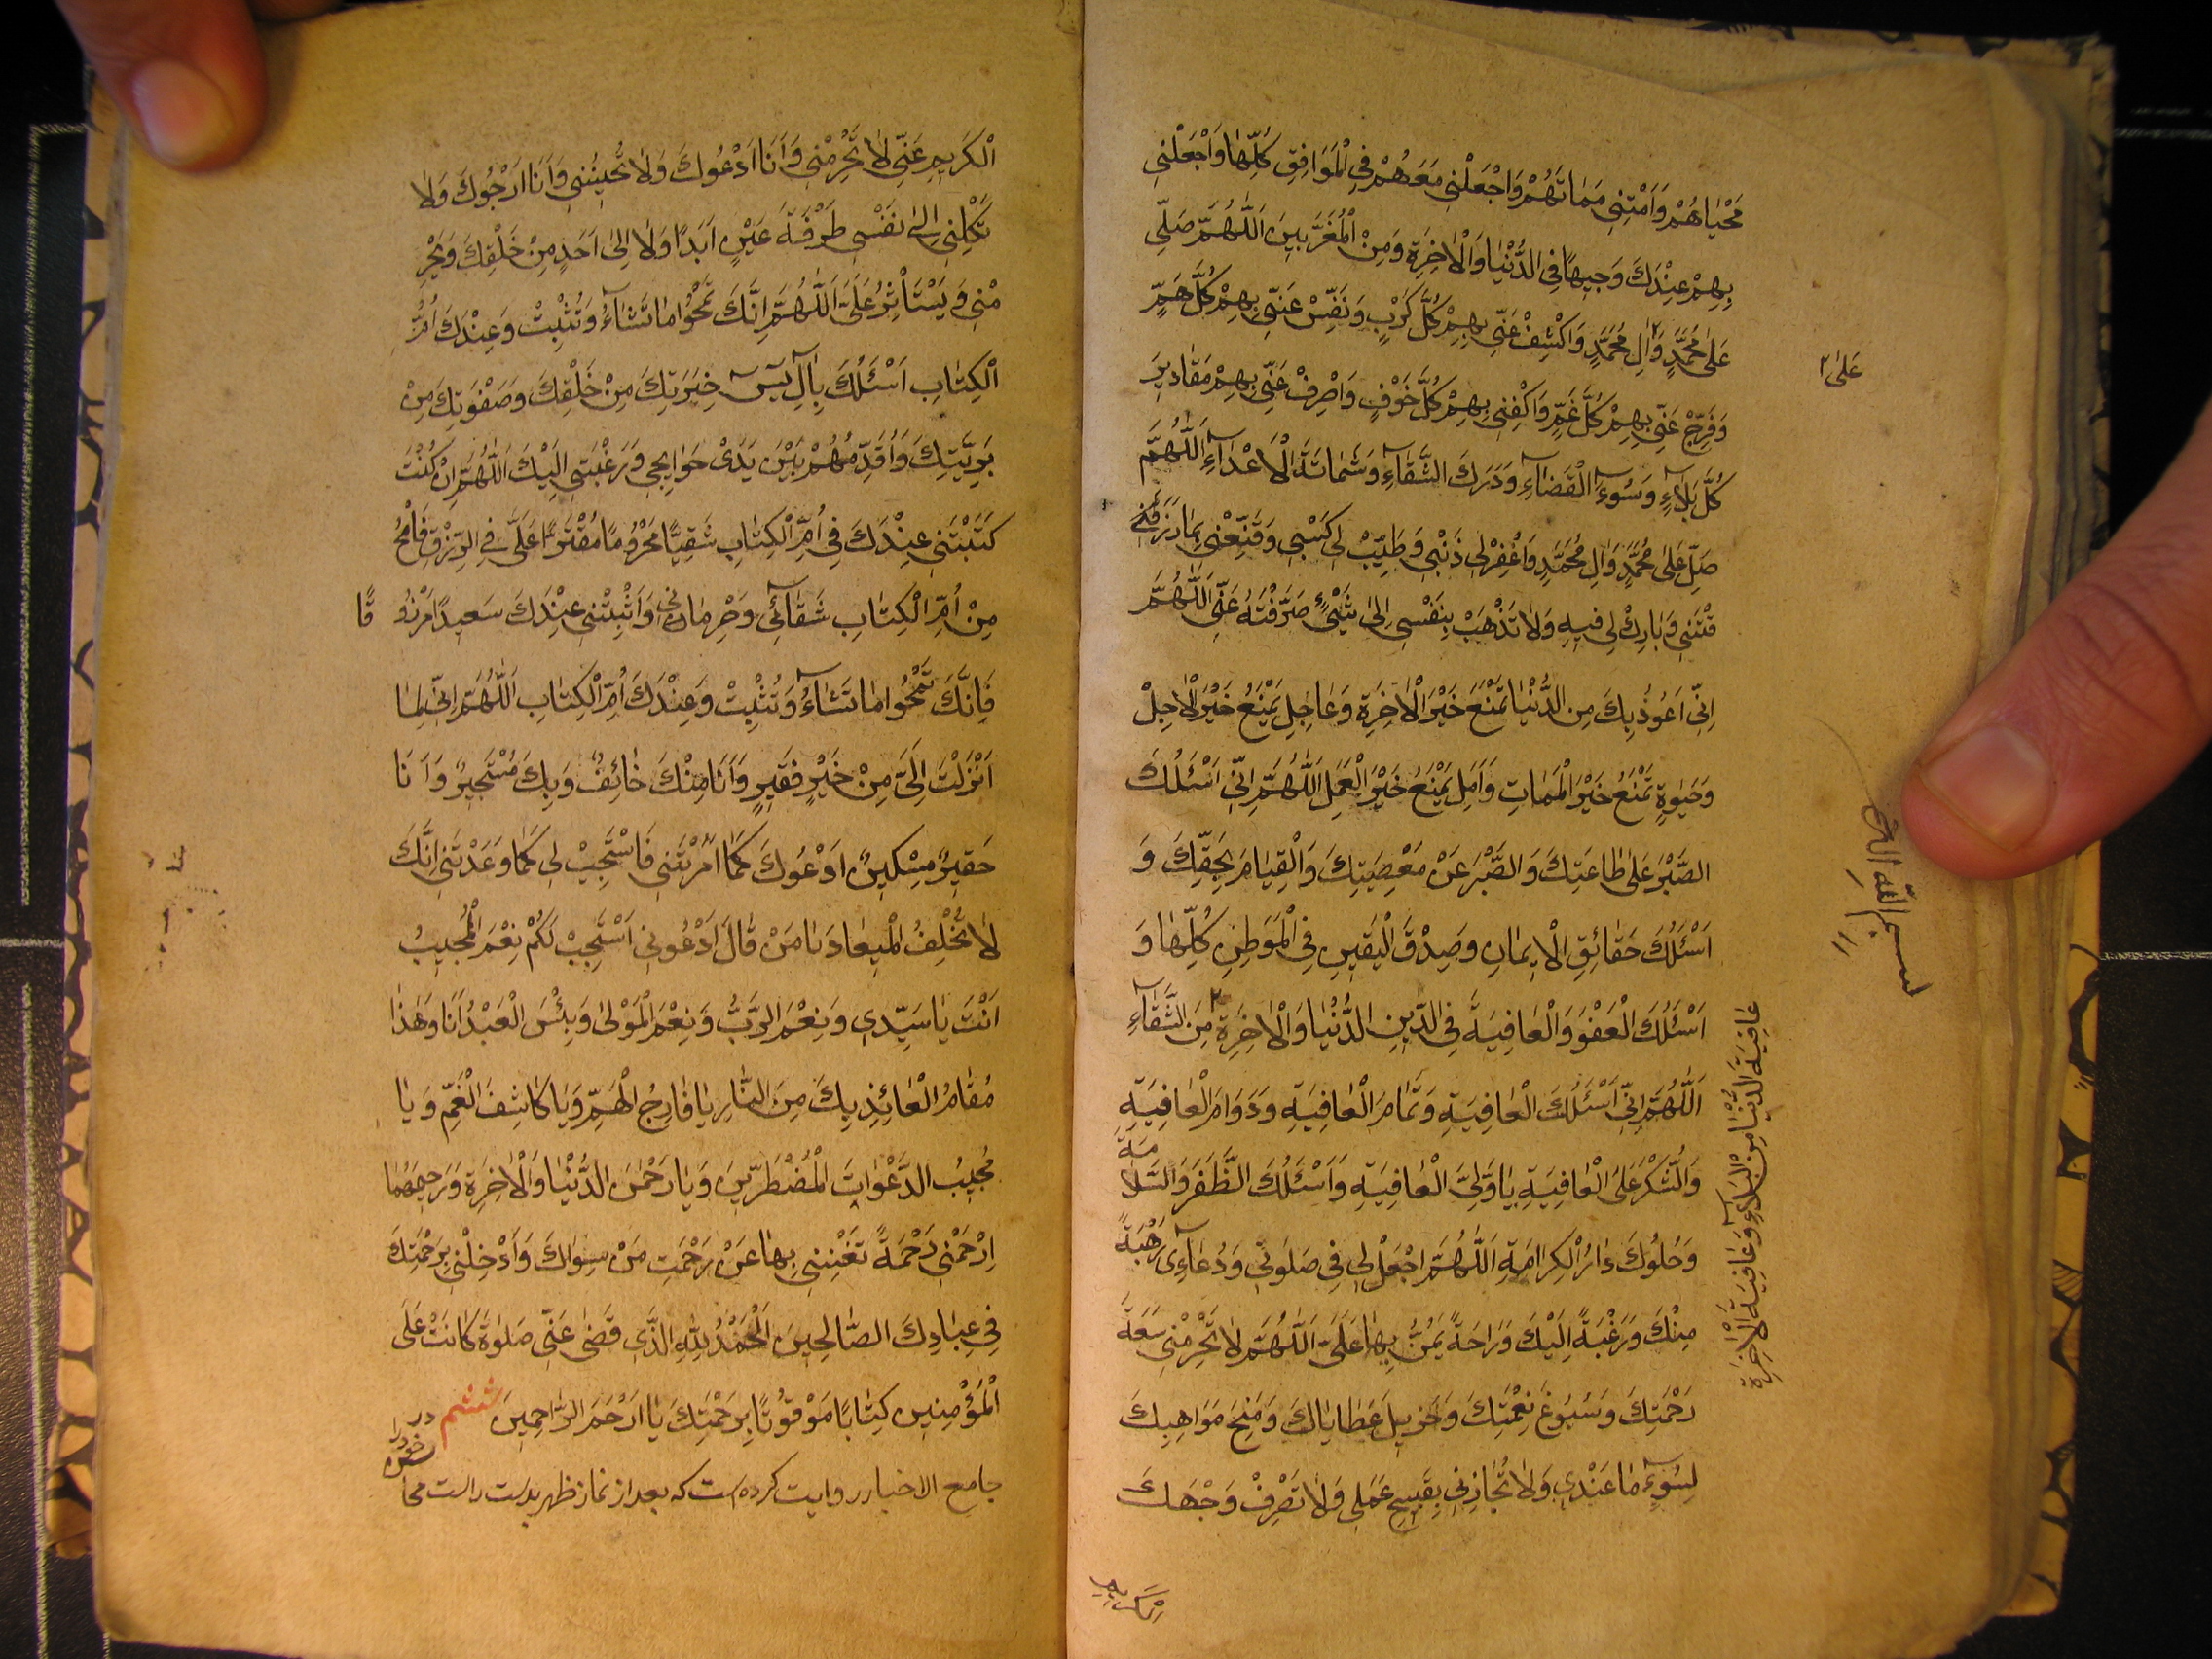 مَحْيٰاهُمْ وَاَمْتِنِى مَمٰاتَهُمْ وَاجْعَلْنِى مَعَهُمْ فِى الْمَوَافِقِ كُلِّهٰا وَاجْعَلْنِى
بِهِمْ عِنْدَكَ وَجِيهًا فِى الدُّنْيٰا وَالْاٰخِرَةِ وَمِنْ الْمُقَرَّبِينَ اَللّٰهُمَّ صَلِّى
عَلىٰ مُحَمَّدٍ وَاٰلِ مُحَمَّدٍ وَاكْشِفْ عَنِّى بِهِمْ كُلَّ كَرْبٍ وَنَفِّسْ عَنِّى بِهِمْ كُلَّ هَمٍّ
وَفَرِّجْ عَنِّى بِهِمْ كُلَّ غَمٍّ وَاكْفِنِى بِهِمْ كُلَّ خَوْفٍ وَاصْرِفْ عَنِّى بِهِمْ مَقٰادِيرَ
كُلَّ بَلٰآءٍ وَسُوٓءِ الْقَضٰآءِ وَدَرَكَ الشَّقٰآءِ وَشَمٰاتَةَ الْاَعْدٰآءِ اَللّٰهُمَّ
صَلِّ عَلىٰ مُحَمَّدٍ وَاٰلِ مُحَمَّدٍ وَاغْفِرْ لِى ذَنْبِى وَطَيِّبْ لِى كَسْبِى وَقَنِّعْنِى بِمٰا رَزَقْتَنِى
قْتَنِى وَبٰارِكْ لِى فِيهِ وَلٰا تَذْهَبْ بِنَفْسِى اِلىٰ شَيْئٍ صَرَّفْتَهُ عَنِّى اَللّٰهُمَّ
اِنِّى اَعُوذُ بِكَ مِن الدُّنْيٰا تَمْنَعُ خَيْرَ الْاٰخِرَةِ وَعٰاجِلٍ يَمْنَعُ خَيْرَ الْاٰجِلْ
وَحَيٰوةٍ تَمْنَعُ خَيْرَ الْمَمٰاتِ وَاَمَلٍ يَمْنَعُ خَيْرَ الْعَمَلِ اَللّٰهُمَّ اِنِّى اَسْئَلُكَ
الصَّبْرَ عَلىٰ طٰاعَتِكَ وَالصَّبْرَ عَنْ مَعْصِيَتِكَ وَالْقِيٰامَ بِحَقِّكَ وَ
اَسْئَلُكَ حَقٰائِقِ الْاِيمٰانِ وَصِدْقَ الْيَقِينِ فِى الْمَوَطِنِ كُلِّهٰا وَ
اَسْئَلُكَ الْعَفْوَ وَالْعَافِيَةَ فِى الدِّينِ الدُّنْيٰا وَالْاٰخِرَةِ مِنَ الشَّقٰآءِ
اَللّٰهُمَّ اِنِّى اَسْئَلُكَ الْعٰافِيَةِ وَتَمٰامَ الْعٰافِيَةِ وَدَوَامَ الْعٰافِيَةِ
وَالشُّكْرَ عَلىَ الْعٰافِيَةِ يٰا وَلِيَّ الْعٰافِيَةِ وَاَسْئَلُكَ الظَّفَرَ وَالسَّلٰامَةَ
وَحُلُوكَ دٰارُ الْكِرٰامَةِ اَللّٰهُمَّ اجْعَلْ لِى فِى صَلٰوتِى وَدُعٰآءِى رَهْبَةً
مِنْكَ وَرَغْبَةً اِلَيْكَ وَرٰاحَةً يَمُنُّ بِهٰا عَلَيَّ اَللّٰهُمَّ لٰا تَحْرِمْنِى سَعَةَ
رَحْمَتِكَ وَسُبُوغَ نِعْمَتِكَ وَجَزِيلَ عَطٰايٰاكَ وَمَنِحَ مَوٰاهِبِكَ
لِسُوٓءِ مٰا عَنْدِى وَلٰا تُجٰازِنِى بِقَبِيحِ عَمَلِى وَلٰا تَصْرِفْ وَجْهَكَ
الكريم
عَلىٰ
بسم الله الرحمن
عٰافِيَةَ الدُّنْيٰا مِنَ الْبَلٰآءِ وَعٰافِيَةَ الْاٰخِرَةِ
الْكَرِيمِ عَنِّى لٰا تَحْرِمْنِى وَاَنَا اَدْعُوكَ وَلٰا تُخَيِّبْنِى وَاَنَا اَرْجُوكَ وَلٰا
تَكِلْنِى اِلىٰ نَفْسِى طَرْفَةَ عَيْنٍ اَبَدًا وَلٰا اِلىٰ اَحَدٍ مِنْ خَلْقِكَ وَيَحْرِ
مْنِى وَيَسْتَأْثِرُ عَلَيَّ اَللّٰهُمَّ اِنَّكَ تَمْحُوا مٰا تَشٰآءُ وَتُثْبِتْ وَعِنْدَكَ اُمُّ
الْكِتٰابِ اَسْئَلُكَ بِاٰلِ يٰسٓ خِيَرَتِكَ مِنْ خَلْقِكَ وَصَفْوَتِكَ مِنْ
بَرِيَّتِكَ وَاُقَدِّمُهُمْ بَيْنَ يَدَىْ حَوٰايِجِى وَرَغْبَتِى اِلَيْكَ اَللّٰهُمَّ اِنْ كُنْتَ
كَتَبْتَنِى عِنْدَكَ فِى اُمِّ الْكِتٰابِ شَقِيًّا مَحْرُومًا مُقْتَّرًا عَلَيَّ فِى الرِّزْقِ فَامْحُ
مِنْ اُمِّ الْكِتٰابِ شَقٰآئِى وَحِرْمٰانِى وَاَثْبِتْنِى عِنْدَكَ سَعِيدًا مَرْزُو قًا
فَاِنَّكَ تَمْحُوا مٰا تَشٰآءُ وَتُثْبِتْ وَعِنْدَكَ اُمُّ الْكِتٰابِ اَللّٰهُمَّ اِنِّى لِمٰا
اَنْزَلْتَ اِلَيَّ مِنْ خَيْرٍ فَقِيرٍ وَاَنَا مِنْكَ خٰائِفٌ وَبِكَ مُسْتَجِيرٌ وَاَنَا
حَقِيرٌ مِسْكِينٌ اَدْعُوكَ كَمٰا اَمَرْتَنِى فَاسْتَجِبْ لِى كَمٰا وَعَدْتَنِى اِنَّكَ
لٰا تُخْلِفُ الْمِيعٰادَ يٰا مَنْ قٰالَ اَدْعُونِى اَسْتَجِبْ لَكُمْ نِعْمَ الْمُجِيبُ
اَنْتَ يٰا سَيِّدِى وَنِعْمَ الرَّبُّ وَنِعْمَ الْمَوْلىٰ وَبِئْسَ الْعَبْدُ اَنَا وَهٰذٰا
مُقٰامُ الْعٰائِذِ بِكَ مِنَ النّٰارِ يٰا فٰارِجُ الْهَمِّ وَيٰا كٰاشِفَ الْغَمِّ وَيٰا
مُجِيبُ الدَّعْوٰاتَ الْمُضْطَرِّينَ وَيٰا رَحْمٰنَ الدُّنْيٰا وَالْاٰخِرَةِ وَرَحِيمَهُمٰا
اِرْحَمْنِى رَحْمَةً تَغْنِنِى بِهٰا عَنْ رَحْمَتِ مَنْ سِوٰاكَ وَاَدْخِلْنِى بِرَحْمَتِكَ
فِى عِبٰادِكَ الصّٰالِحِينَ اَلْحَمْدُ لِلّٰهِ الَّذِى قَضىٰ عَنِّى صَلٰوةً كٰانَتْ عَلَى
الْمُؤْمِنِينِ كِتٰابًا مَوْقُوتًا بِرَحْمَتِكَ يٰا اَرْحَمَ الرّٰاحِمِينَ ششم در
جامع الاخبار روایت کرده است که بعد از نماز ظهر بدست راست محاسن خود را